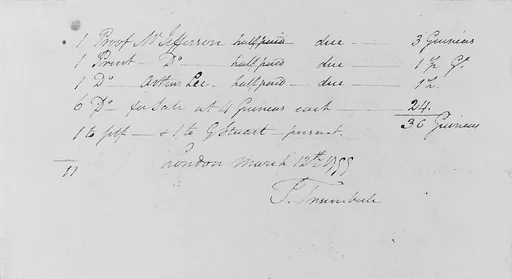 1 Proof Mr. Jefferson half paid due 3 Guineas
1 Print Do half paid due 1½ Gs.
1 Do Arthur Lee half paid due 1½.
6 Do for Sale at 4 Guineas each 24.
1 to self & 1 to G Stuart present. 30 Guineas
11
London March 12th
J. Trumbull